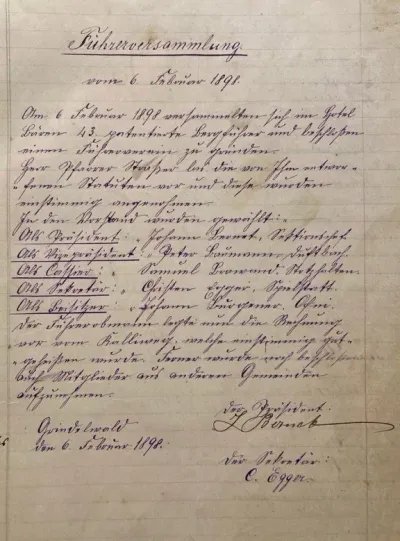 Führerversammlung
vom 6. Februar 1898.
Am 6 Februar 1898 versammelten sich im Hotel
Bären 43. patentierte Bergführer und beschloßen
einen Führerverein zu gründen.
Herr Pfarrer Straßer las die von Ihm entwor-
fenen Statuten vor und diese wurden
einstimmig angenommen.
In den Vorstand wurden gewählt:
Als Präsident: Johann Bernet,
Als Vizepräsident: Peter Baumann, Duftbach.
Als Cassier: Samuel Brawand, Stotzhalten.
Als Sekretär: Christen Egger,
Als Beisitzer: Johann Burgener,
Der Führerobmann legte nun die Rechnung
vor von Kalliweg, welche einstimmig gut-
geheißen wurde. Ferner wurde noch beschloßen
auch Mitglieder aus anderen Gemeinden
aufzunehmen.
Der Präsident:
J Bernet
Grindelwald
den 6. Februar 1898.
Der Sekretär:
C. Egger.